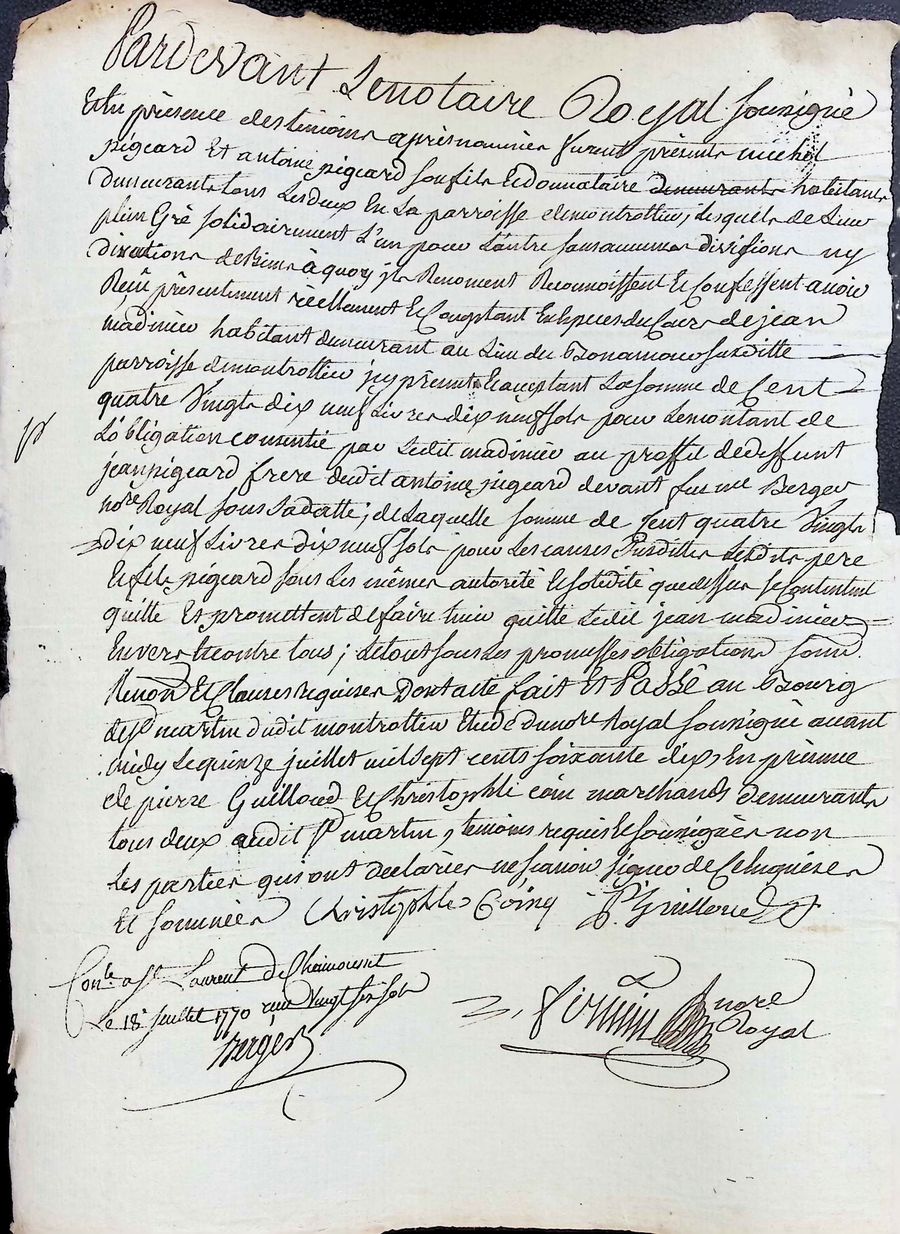 Pardevant Le notaire Royal soussigné
Et En présence des temoins apres nommés furent présents michel
pigeard Et antoine pigeard son fils Et donnataire demeurants habitants
demeurants tous Les deux En La parroisse de montrottier, Lesquels de Leur
plein Gré solidairement L'un pour L'autre sans aucunes divisions ny
discutions de Biens à quoy ils Renoncent Reconnoissent Et Confessent avoir
Reçu présentement réellement Et Comptant En Especes du Cours de jean
madinier habitant demeurant au Lieu du susditte
parroisse de montrottier icy présent Et acceptant La somme de Cent
quatre Vingts dix neuf Livres dix neuf sols pour Le montant de
L'obligation consentie par Ledit madinier au proffit de deffunt
jean pigeard frere dudit antoine pigeard devant feu me Berger
nore Royal sous Sa datte; de Laquelle somme de Cent quatre Vingts
dix neuf Livres dix neuf sols pour Les causes susdittes Lesdits pere
Et fils pigeard sous Les mêmes autorité Et solidité que dessus se Contentent
quitte Et promettent de faire tenir quitte Ledit jean madinier
Envers Et contre tous; Le tout sous Les promesses obligations soum.
Renon Et Clauses requises Dont acte fait Et Passé au Bourg
de St martin dudit montrottier Etude du nore Royal soussigné avant
midy Le quinze juillet mil sept cents soixante dix, En présence
de pierre Guilloud Et Christophle Coin marchands demeurants
tous deux audit St martin, temoins requis Et soussignés non
Les parties qui ont declarées ne scavoir signer de Ce Enquises
Et sommées Christophle Coing P. Guilloud
Conlé a St Laurent de Chamousset
Le 18e juillet 1770 reçu Vingt six sols
Berger
nore
Royal